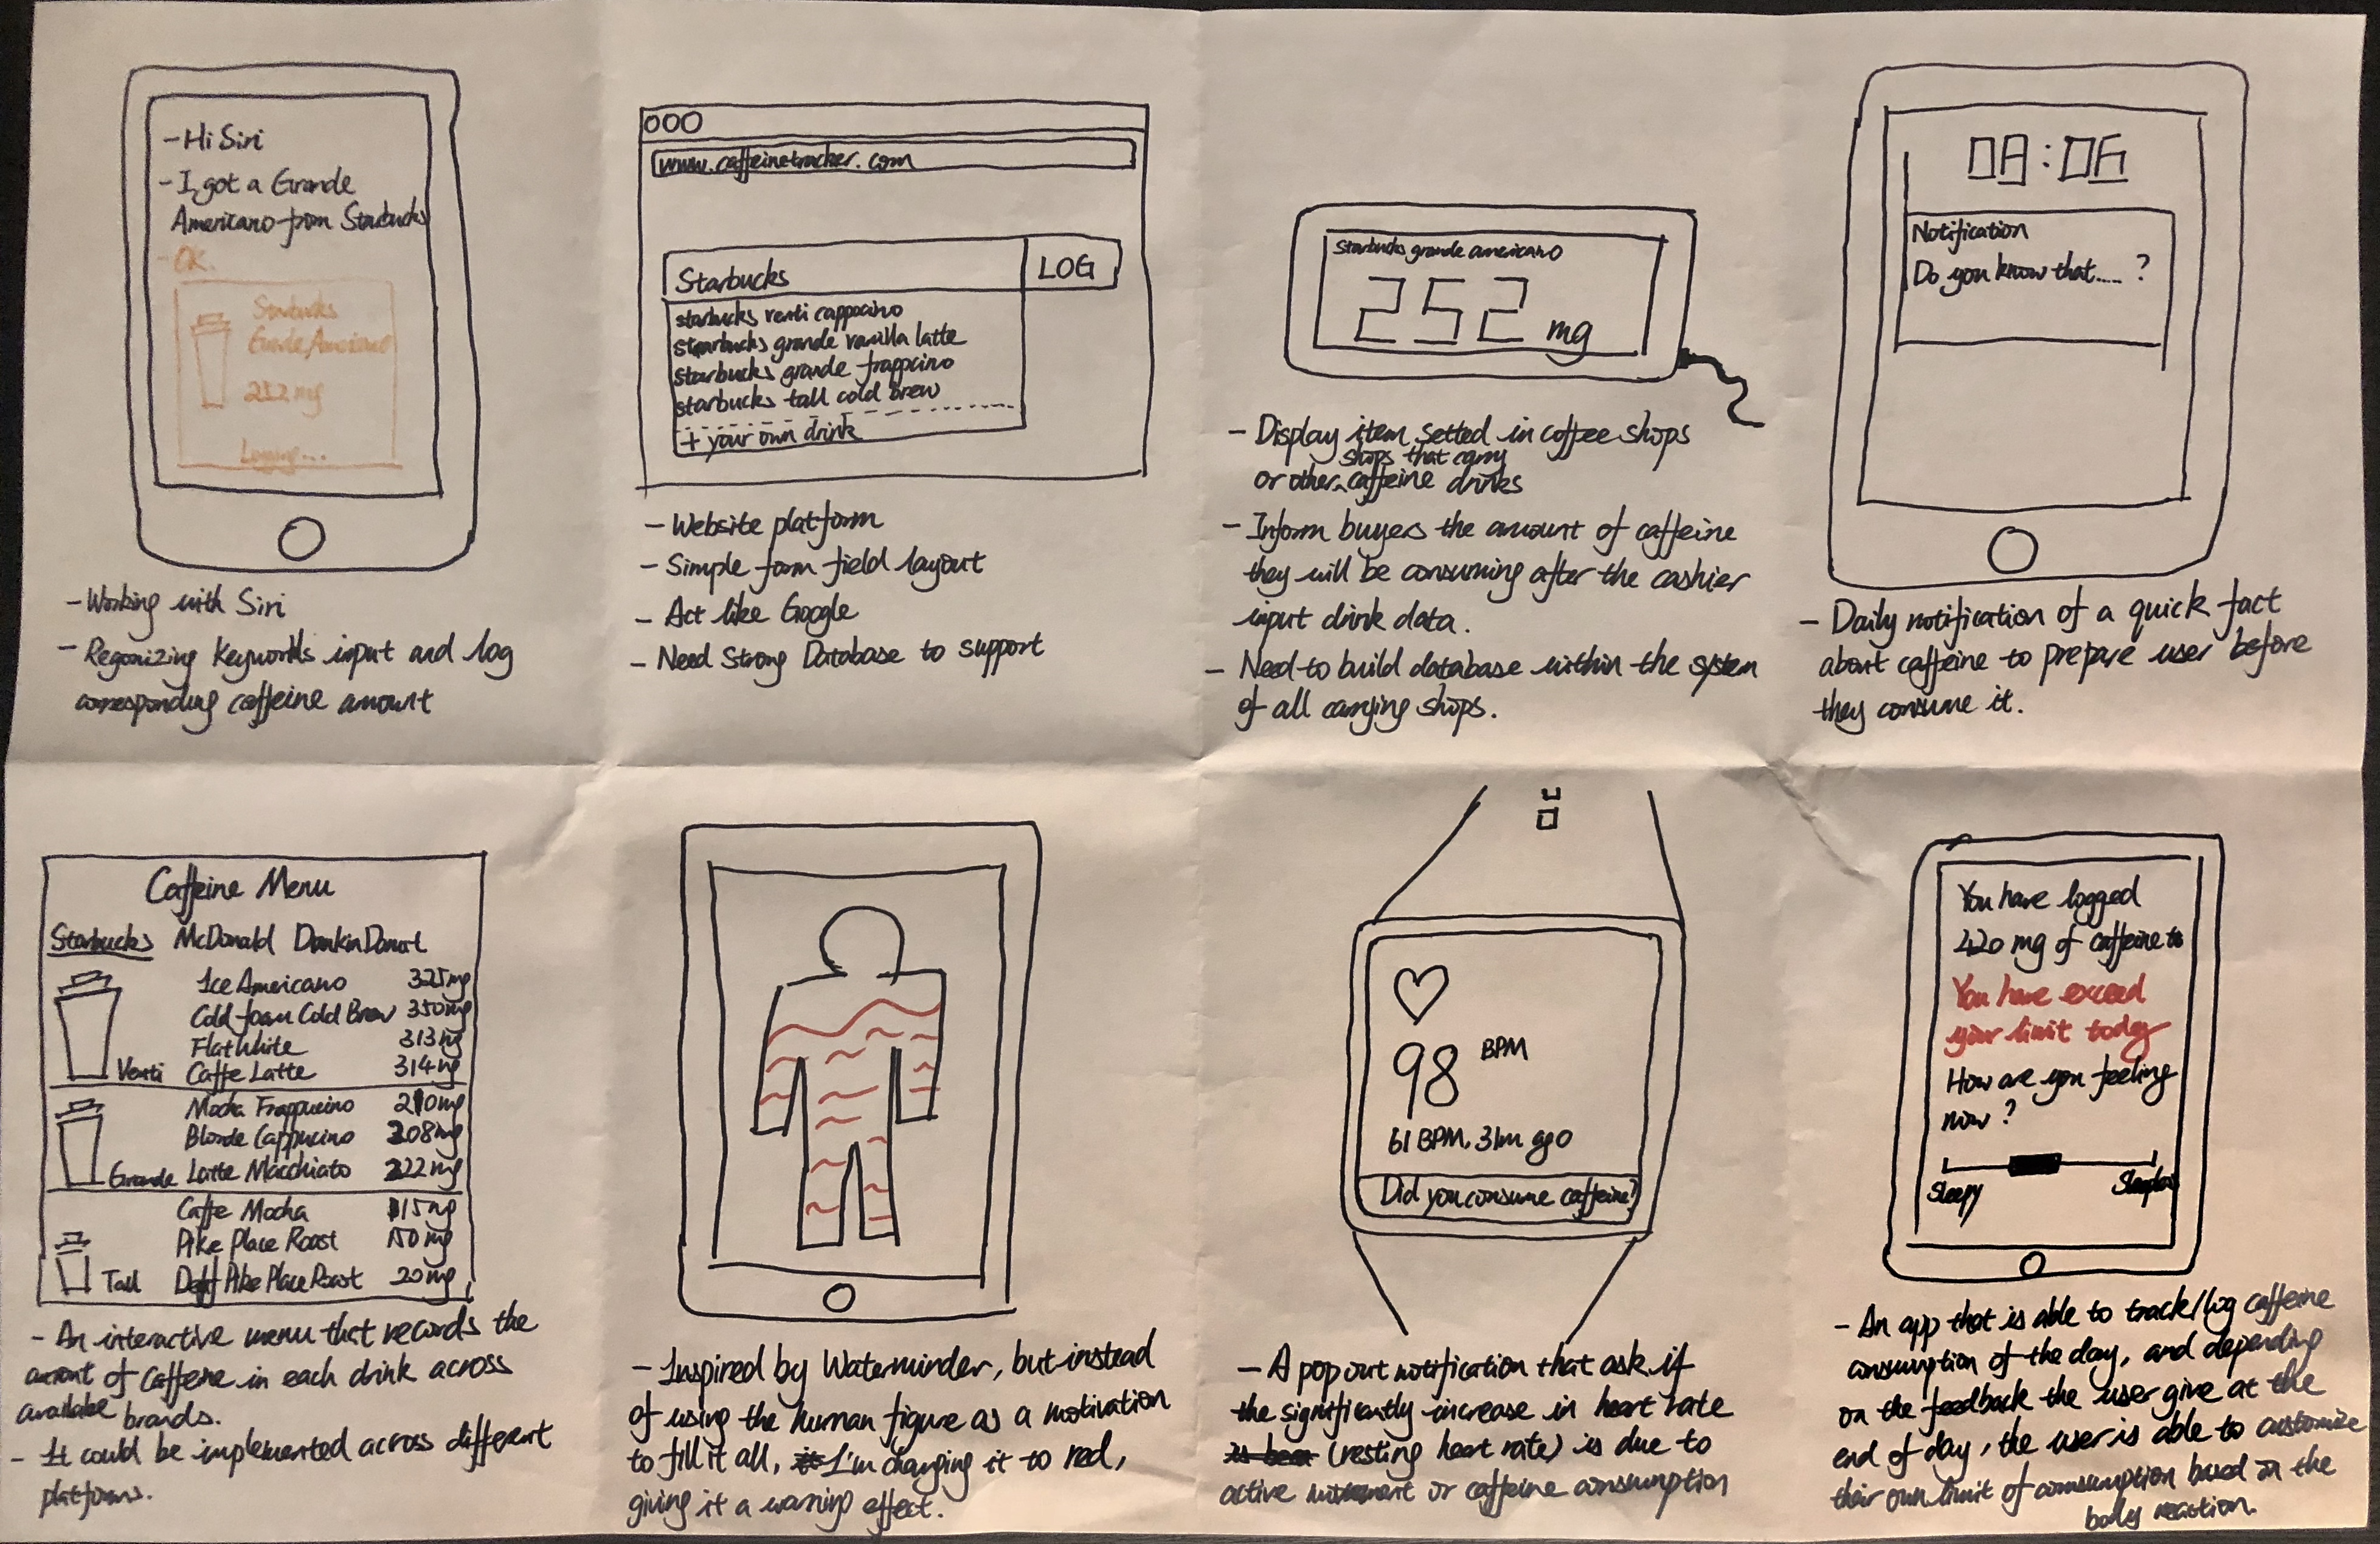 - Hi Siri
- I got a Grande
Americano from Starbucks
- OK.
Starbucks
Grande Americano
252 mg
Logging...
- Working with Siri
- Regonizing Keywords input and log
corresponding caffeine amount
www.caffeinetracker.com
Starbucks
LOG
starbucks venti cappocino
starbucks grande vanilla latte
starbucks grande frappcino
starbucks tall cold brew
+ your own drink
- Website platform
- Simple form field layout
- Act like Google
- Need Strong Database to support
Starbucks grande americano
252 mg
- Display item setted in coffee shops
shops that carry
or other caffeine drinks
- Inform buyers the amount of caffeine
they will be consuming after the cashier
input drink data.
- Need to build database within the system
of all carrying shops.
08:06
Notification
Do you know that.... ?
- Daily notification of a quick fact
about caffeine to prepare user before
they consume it.
Caffeine Menu
Starbucks McDonald Dunkin Donut
Ice Americano 325mg
Cold foam Cold Brew 350mg
Flat White 313mg
Venti Caffe Latte 314mg
Mocha Frappucino 210mg
Blonde Cappucino 208mg
Grande Latte Macchiato 222mg
Caffe Mocha 115mg
Pike Place Roast 150mg
Tall Decaf Pike Place Roast 20mg
- An interactive menu that records the
amount of caffeine in each drink across
available brands.
- It could be implemented across different
platforms.
- Inspired by Waterminder, but instead
of using the human figure as a motivation
to fill it all, it I'm changing it to red,
giving it a warning effect.
98 BPM
61 BPM, 31m ago
Did you consume caffeine?
- A pop out notification that ask if
the significantly increase in heart rate
is been (resting heart rate) is due to
active movement or caffeine consumption
You have logged
420 mg of caffeine to
You have exceed
your limit today
How are you feeling
now?
Sleepy Sleepless
- An app that is able to track/log caffeine
consumption of the day, and depending
on the feedback the user give at the
end of day, the user is able to customize
their own limit of consumption based on the
body reaction.